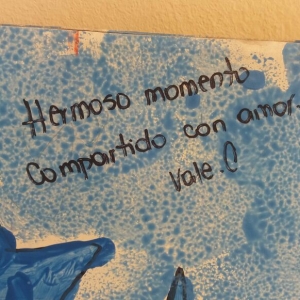 Hermoso momento
Compartido con amor.
Vale.